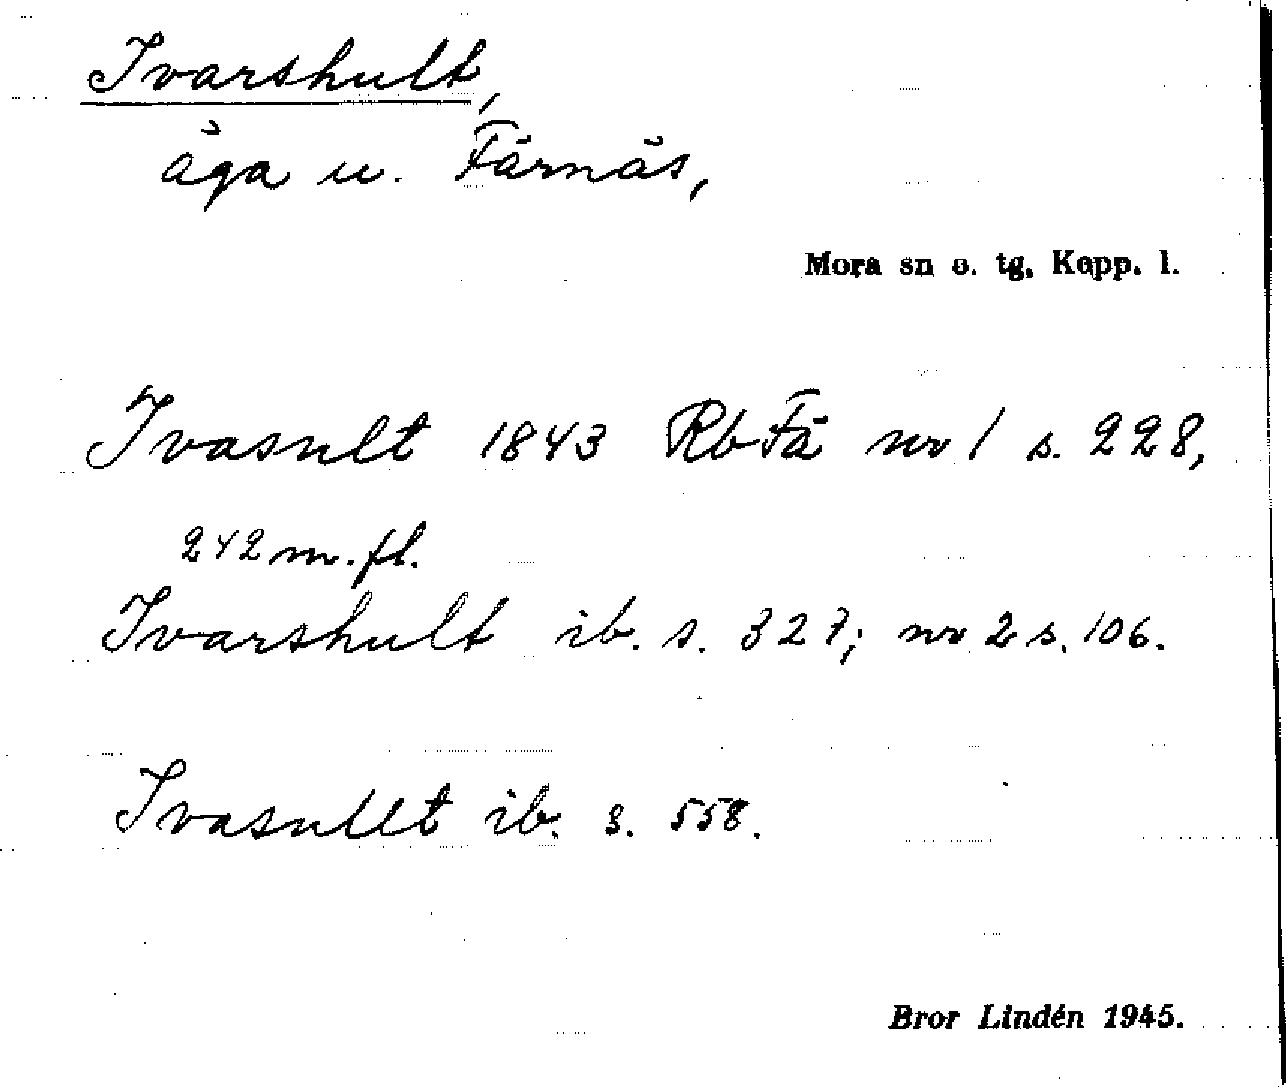 Ivarshult,
äga u. Färnäs,
Mora sn o. tg. Kopp. l.
Ivasult 1843 Rb Fä nr 1 s. 228,
242 m. fl.
Ivarshult ib. s. 327; nr 2 s. 106.
Ivasullt ib. s. 558.
Bror Lindén 1945.